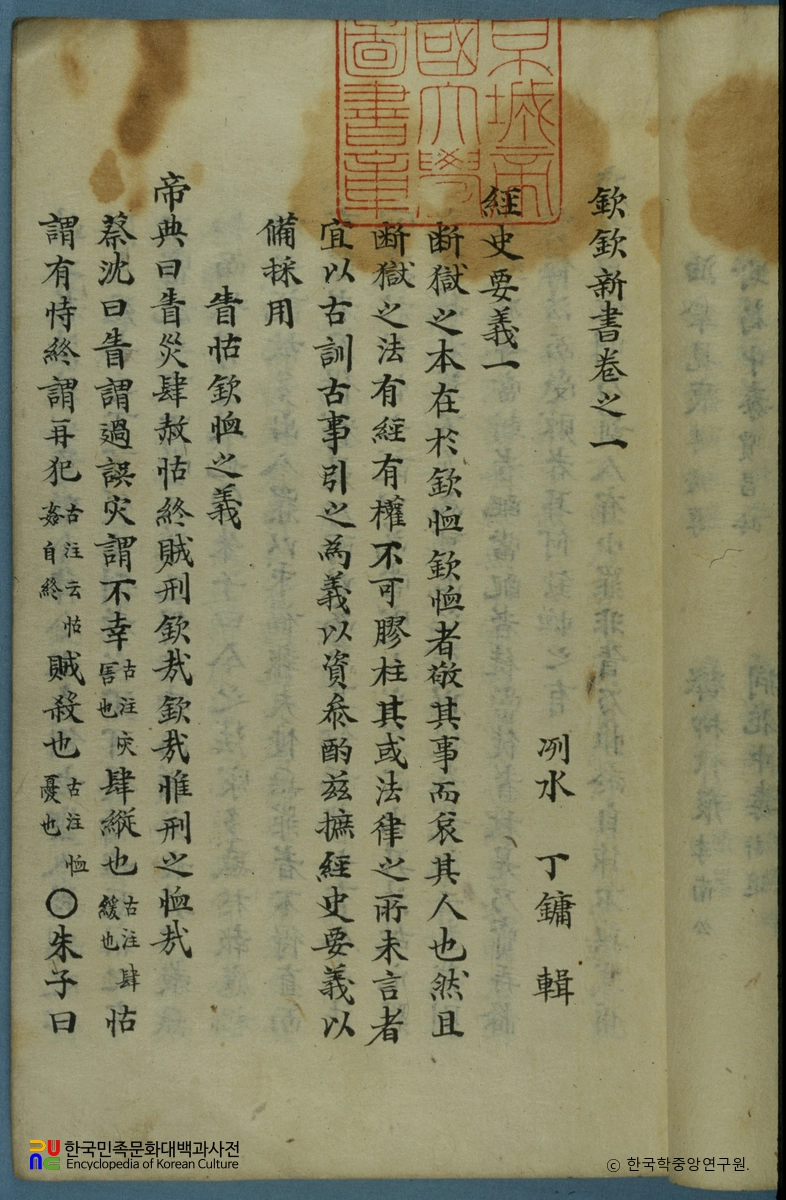 欽欽新書卷之一
冽水 丁鏞 輯
經史要義一
斷獄之本在於欽恤欽恤者敬其事而哀其人也然且
斷獄之法有經有權不可膠柱其或法律之所未言者
宜以古訓古事引之為義以資叅酌茲摭經史要義以
備採用
眚怙欽恤之義
帝典曰眚災肆赦怙終賊刑欽哉欽哉惟刑之恤哉
蔡沈曰眚謂過誤灾謂不幸古注灾害也肆縱也古注肆緩也怙
謂有恃終謂再犯古注云怙姦自終賊殺也古注恤憂也〇朱子曰
京城帝
國大學
圖書章
한국민족문화대백과사전
Encyclopedia of Korean Culture
© 한국학중앙연구원.